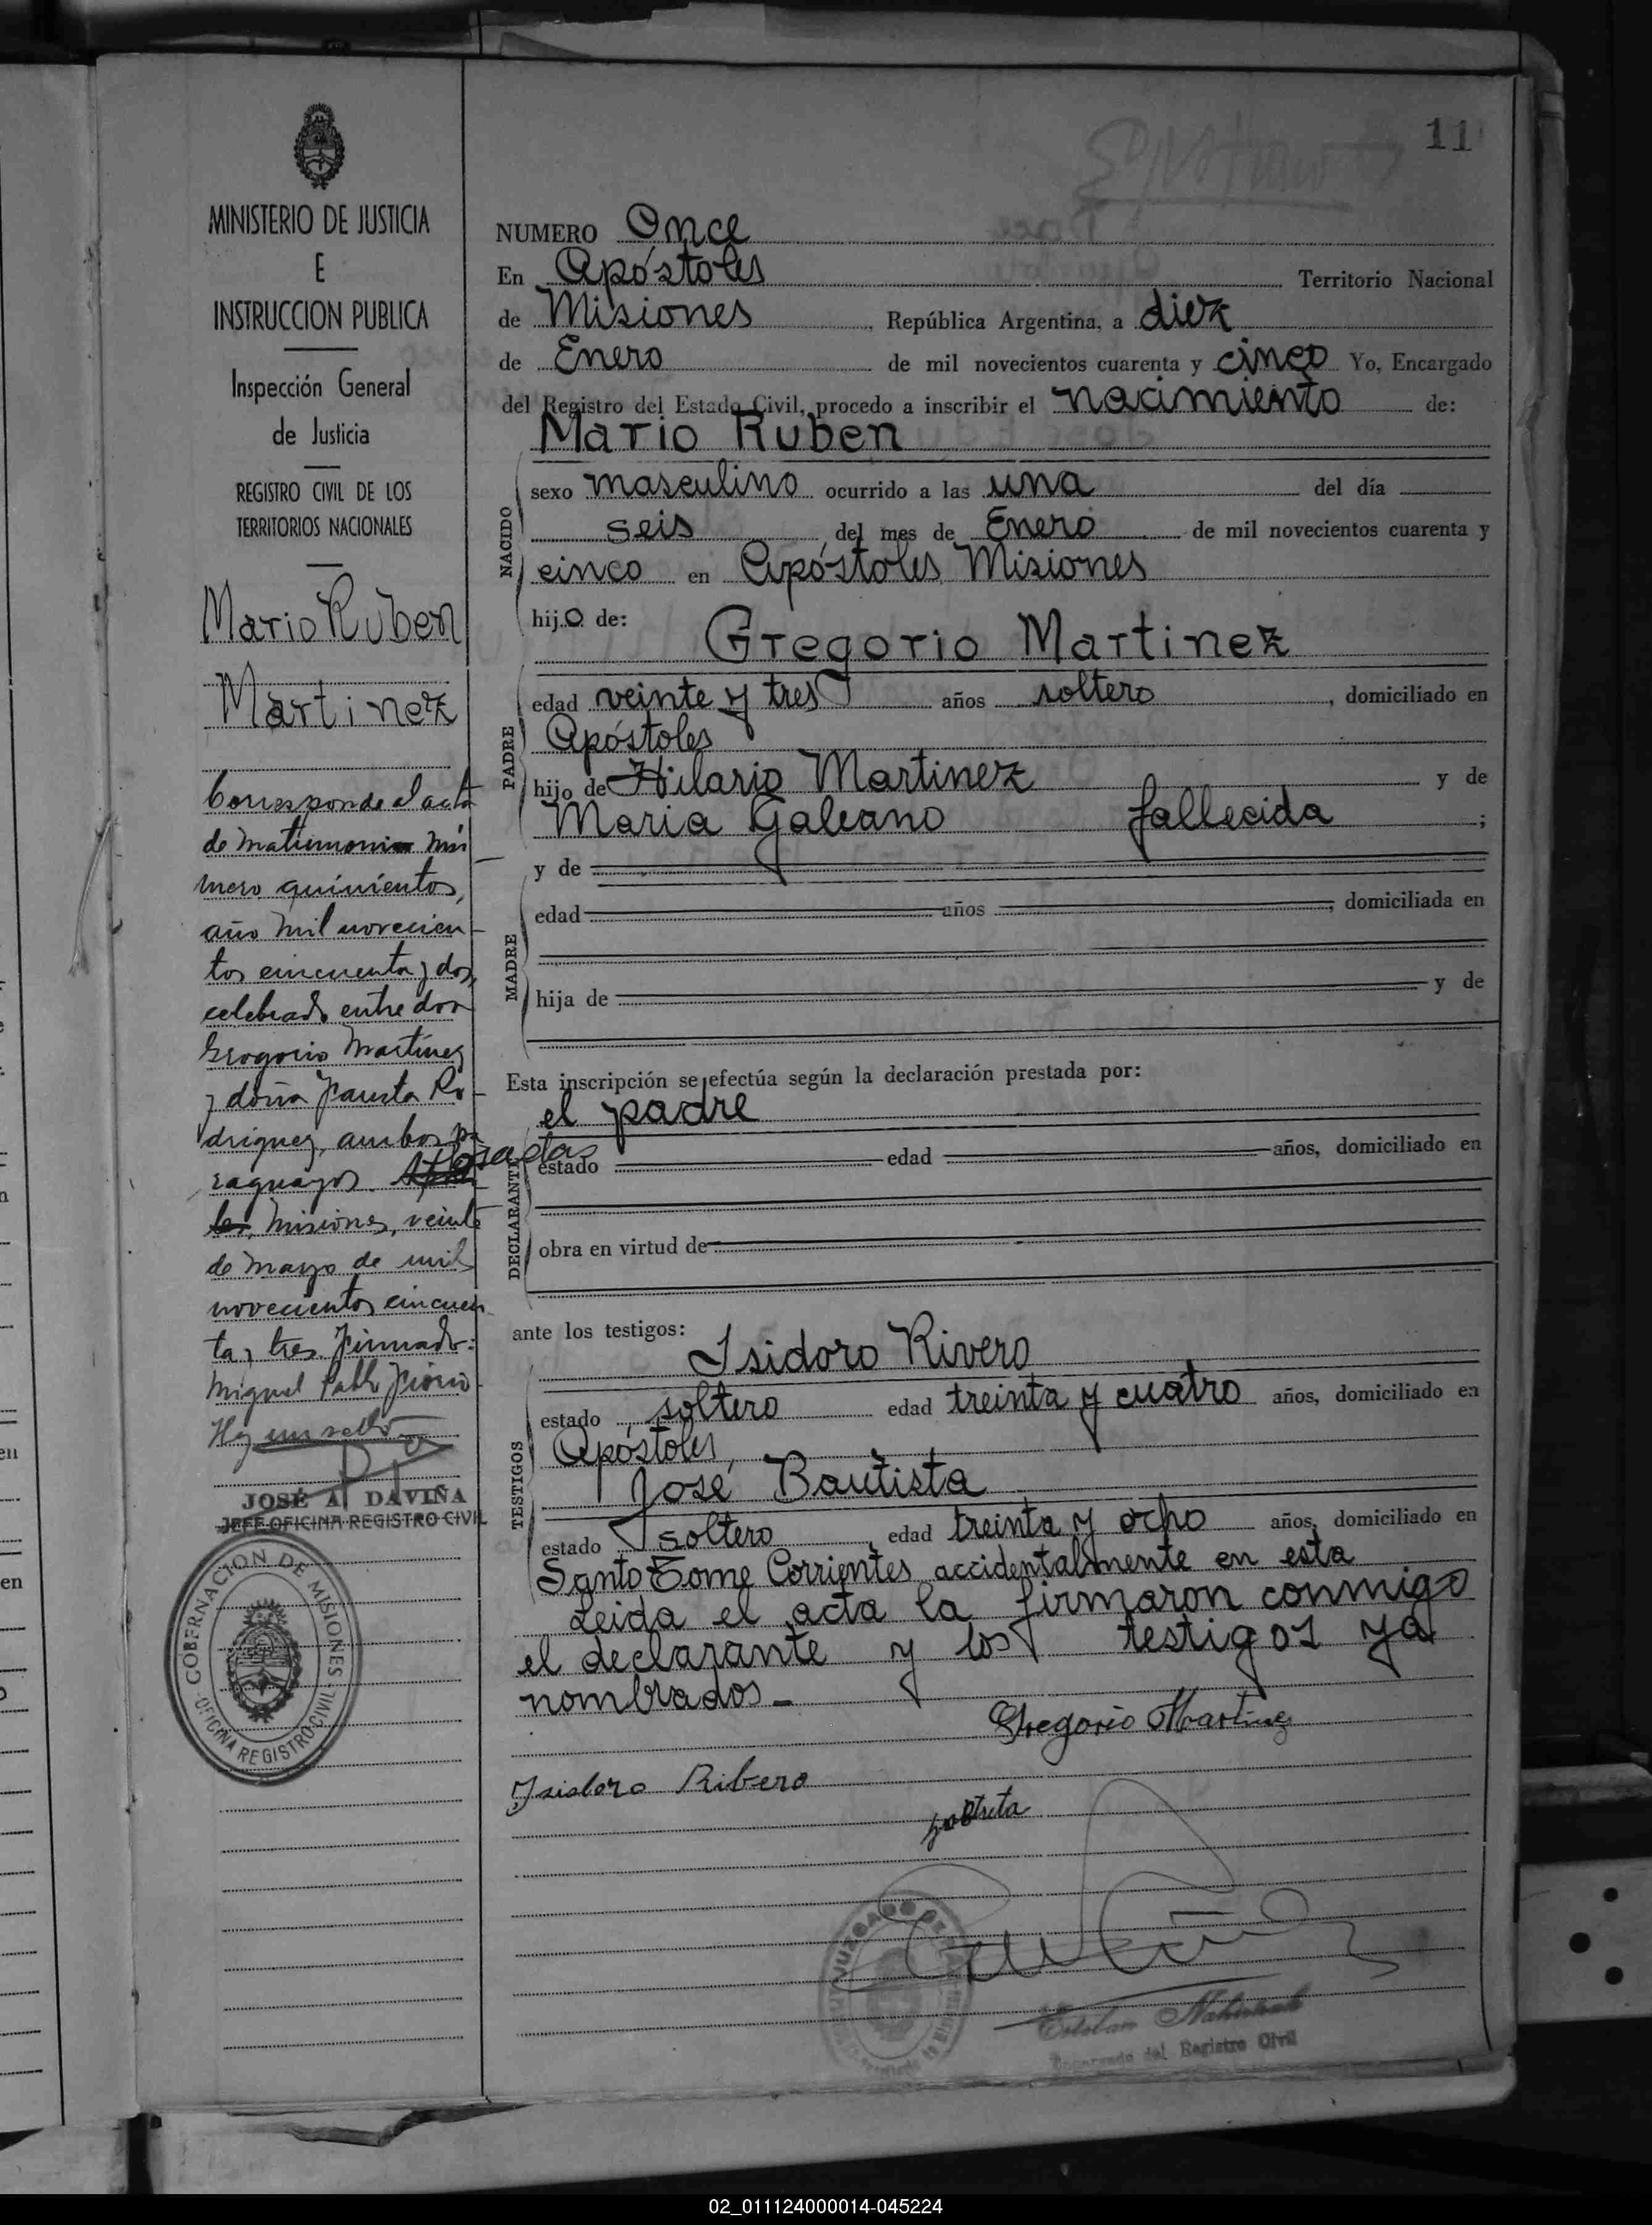 11
MINISTERIO DE JUSTICIA
E
INSTRUCCION PUBLICA
Inspección General
de Justicia
REGISTRO CIVIL DE LOS
TERRITORIOS NACIONALES
Mario Ruben
Martinez
Corresponde al acta
de matrimonio nú
mero quinientos,
año mil novecien-
tos cincuenta y dos,
celebrado entre don
Gregorio Martínez
y doña Fausta Ro-
driguez, ambos pa
raguayos. Posadas
Misiones, veinte
de Mayo de mil
novecientos cincuen-
ta y tres. Firmado:
Miguel Pablo
Hay un sello
JOSÉ A. DAVIÑA
JEFE OFICINA REGISTRO CIVIL
GOBERNACION DE MISIONES
OFICINA REGISTRO CIVIL
NUMERO Once
En Apóstoles Territorio Nacional
de Misiones, República Argentina, a diez
de Enero de mil novecientos cuarenta y cinco Yo, Encargado
del Registro del Estado Civil, procedo a inscribir el nacimiento de:
Mario Ruben
NACIDO
sexo masculino ocurrido a las una del día
seis del mes de Enero de mil novecientos cuarenta y
cinco en Apóstoles Misiones
hijo de:
Gregorio Martinez
PADRE
edad veinte y tres años soltero, domiciliado en
Apóstoles
hijo de Hilario Martinez y de
Maria Galeano fallecida;
y de
MADRE
edad años, domiciliada en
hija de y de
Esta inscripción se efectúa según la declaración prestada por:
el padre
DECLARANTE
estado edad años, domiciliado en
obra en virtud de
ante los testigos:
Isidoro Rivero
TESTIGOS
estado soltero edad treinta y cuatro años, domiciliado en
Apóstoles,
José Bautista
estado soltero, edad treinta y ocho años, domiciliado en
Santo Tome Corrientes accidentalmente en esta
Leida el acta la firmaron conmigo
el declarante y los testigos ya
nombrados.-
Gregorio Martinez
Isidoro Ribero
JUZGADO DE
Esteban
Encargado del Registro Civil
02_011124000014-045224